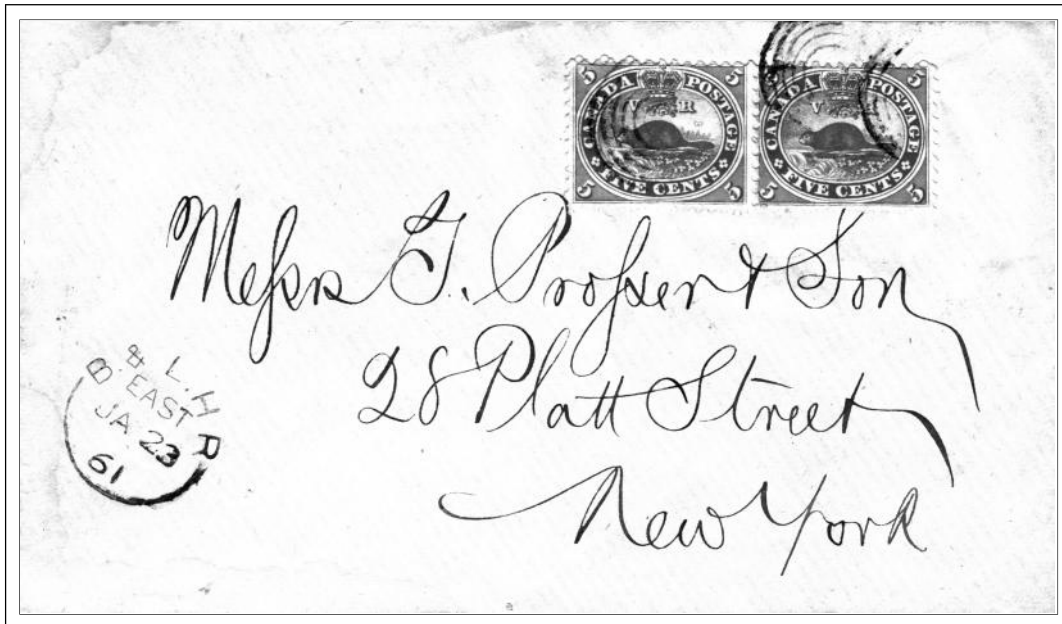 5 CANADA POSTAGE 5
V R
5 FIVE CENTS 5
5 CANADA POSTAGE 5
V R
5 FIVE CENTS 5
Messrs T. Prosser & Son
28 Platt Street
New York
B. & L. H R
EAST
JA 23
61